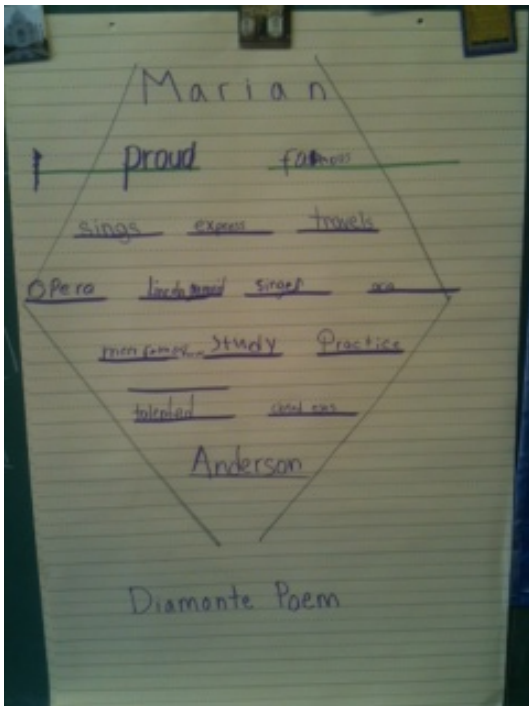 Marian
proud famous
sings express travels
Opera singer
Study Practice
talented closed eyes
Anderson
Diamante Poem